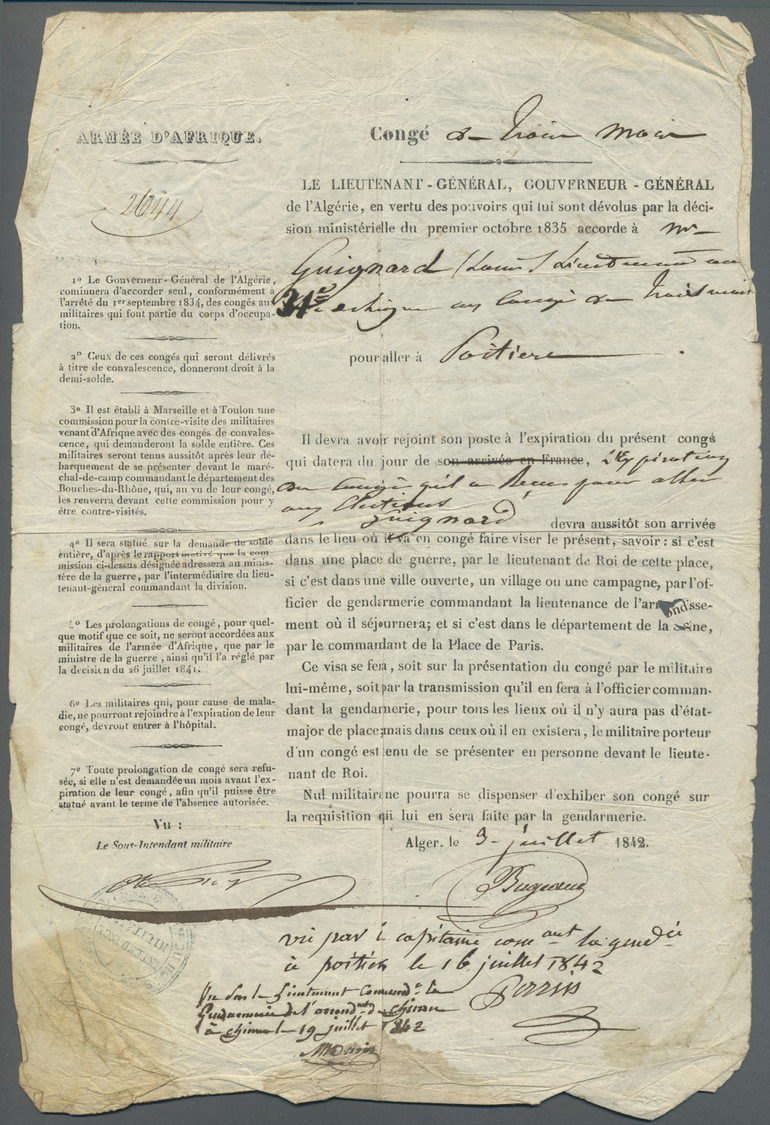 ARMÉE D'AFRIQUE.
2644
1º Le Gouverneur-Général de l'Algérie,
continuera d'accorder seul, conformément à
l'arrêté du 1er septembre 1834, des congés au
militaires qui font partie du corps d'occupa-
tion.
2º Ceux de ces congés qui seront délivrés
à titre de convalescence, donneront droit à la
demi-solde.
3º Il est établi à Marseille et à Toulon une
commission pour la contre-visite des militaires
venant d'Afrique avec des congés de convales-
cence, qui demanderont la solde entière. Ces
militaires seront tenus aussitôt après leur dé-
barquement de se présenter devant le maré-
chal-de-camp commandant le département des
Bouches-du-Rhône, qui, au vu de leur congé,
les renverra devant cette commission pour y
être contre-visités.
4º Il sera statué sur la demande de solde
entière, d'après le rapport motivé que la com-
mission ci-dessus désignée adressera au minis-
tère de la guerre, par l'intermédiaire du lieu-
tenant-général commandant la division.
5º Les prolongations de congé, pour quel-
que motif que ce soit, ne seront accordées aux
militaires de l'armée d'Afrique, que par le
ministre de la guerre, ainsi qu'il l'a réglé par
la décision du 26 juillet 1841.
6º Les militaires qui, pour cause de mala-
die, ne pourront rejoindre à l'expiration de leur
congé, devront entrer à l'hôpital.
7º Toute prolongation de congé sera refu-
sée, si elle n'est demandée un mois avant l'ex-
piration de leur congé, afin qu'il puisse être
statué avant le terme de l'absence autorisée.
Vu :
Le Sous-Intendant militaire
Congé de trois mois
LE LIEUTENANT-GÉNÉRAL, GOUVERNEUR-GÉNÉRAL
de l'Algérie, en vertu des pouvoirs qui lui sont dévolus par la déci-
sion ministérielle du premier octobre 1835 accorde à Mr
Guignard (Louis) Lieutenant au
31e un Congé de trois mois
pour aller à Poitiers
Il devra avoir rejoint son poste à l'expiration du présent congé
qui datera du jour de son arrivée en France, l'Expiration
du Congé qu'il a pour aller
aux Elections
Guignard devra aussitôt son arrivée
dans le lieu où il va en congé faire viser le présent, savoir : si c'est
dans une place de guerre, par le lieutenant de Roi de cette place,
si c'est dans une ville ouverte, un village ou une campagne, par l'of-
ficier de gendarmerie commandant la lieutenance de l'arrondisse-
ment où il séjournera; et si c'est dans le département de la Seine,
par le commandant de la Place de Paris.
Ce visa se fera, soit sur la présentation du congé par le militaire
lui-même, soit par la transmission qu'il en fera à l'officier comman-
dant la gendarmerie, pour tous les lieux où il n'y aura pas d'état-
major de place; mais dans ceux où il en existera, le militaire porteur
d'un congé est tenu de se présenter en personne devant le lieute-
nant de Roi.
Nul militaire ne pourra se dispenser d'exhiber son congé sur
la requisition qui lui en sera faite par la gendarmerie.
Alger, le 3 juillet 1842.
Bugeaud
vu par le capitaine comant la gendie
à poitiers le 16 juillet 1842
Perrin
Vu par le Lieutenant Commandt la
Gendarmerie de l'arrondt de Chinon
à Chinon le 19 juillet 1842